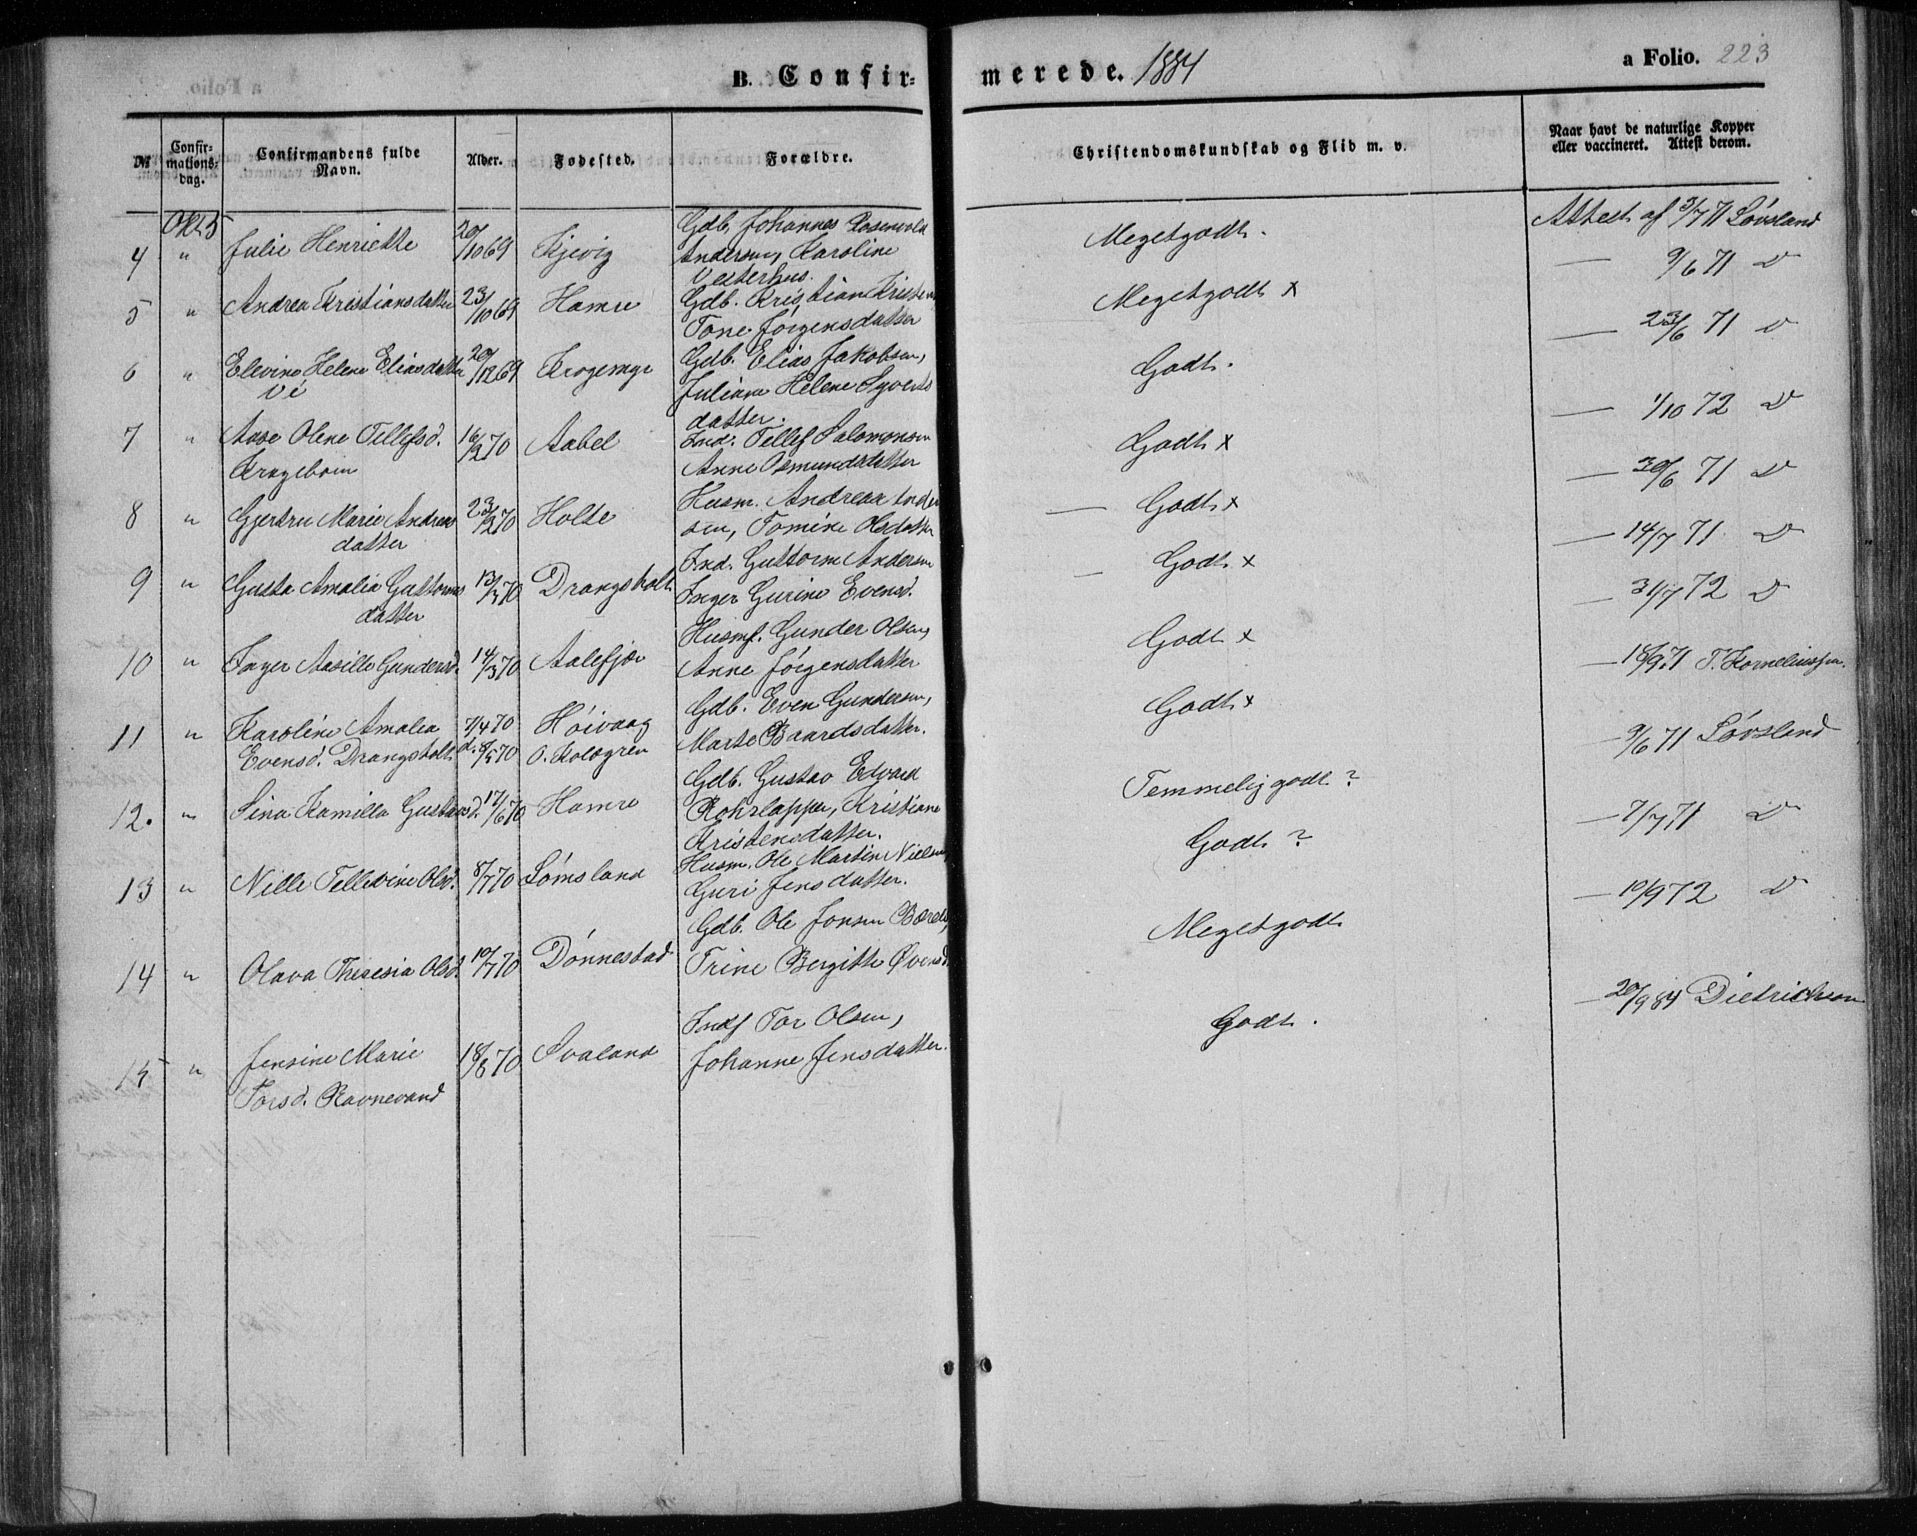 B. Confir-
merede. 1884
a Folio. 223
№
Confir-
mations-
dag.
Confirmandens fulde
Navn.
Alder.
Fødested.
Forældre.
Christendomskundskab og Flid m. v.
Naar havt de naturlige Kopper
eller vaccineret. Attest derom.
Okt 5
4 " Julie Henriette 20/10 69 Kjevig
Gdb. Johannes Rosenvold
Andersen, Karoline
Vesterhus.
Megetgodt.
Attest af 3/7 71 Løvsland
5 " Andrea Kristiansdatter 23/10 69 Hamre
Gdb. Kristian Kristens
Tone Jörgensdatter
Megetgodt x
— 9/6 71 D
6 " Elevine Helene Eliasdatter 20/12 69 Krogemyr
vi
Gdb. Elias Jakobsen,
Juliane Helene Syverts
datter.
Godt.
— 23/6 71 D
7 " Aase Olene Tellefsd. 16/2 70 Aabel
Krageboen
Ind. Tellef Salomonsen
Anne Osmundsdatter
Godt x
— 1/10 72 D
8 " Gjertru Marie Andreas 23/2 70 Holte
datter
Husm. Andreas Ander
sen, Tomine Olsdatter
— Godt x
— 30/6 71 D
9 " Gusta Amalia Guttorms 13/3 70 Drangsholt
datter
Ind. Guttorm Andersen
Inger Gurine Evensd.
— Godt x
— 14/7 71 D
10 " Inger Aasille Gundersd. 14/3 70 Aalefjær
Husmf. Gunder Olsen,
Anne Jörgensdatter
Godt x
— 31/7 72 D
11 " Karoline Amalia 7/4 70 Höivaag
Evensd. Drangsholt d. 8/5 70 O.
Gdb. Even Gundersen,
Marte Baardsdatter.
Godt x
— 18/9 71 T. Korneliussen.
12. " Sina Kamilla Gustavsd. 17/6 70 Hamre
Gdb. Gustav Edvard
Rohrlapper, Kristiane
Kristensdatter.
Temmelig godt ?
— 9/6 71 Løvsland
13 " Nille Tellevine Olsd. 8/7 70 Lömsland
Husm. Ole Martin Nielsen,
Guri Jensdatter.
Godt ?
— 7/7 71 D
14 " Olava Theresia Olsd. 10/7 70 Dönnestad
Gdb. Ole Jonsen Bærels,
Trine Bergitte Øvensd.
Megetgodt
— 10/9 72 D
15 " Jensine Marie 18/8 70 Svaland
Torsd. Ravnevand
Indf Tor Olsen,
Johanne Jensdatter.
Godt.
— 20/9 84 Dietrichson